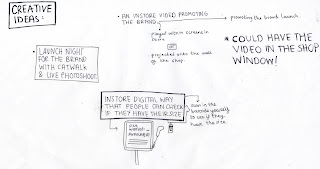 CREATIVE
IDEAS:
AN INSTORE VIDEO PROMOTING
THE BRAND
promoting the brand launch.
played within screens in
store
OR
projected onto the wall of
the shop.
* COULD HAVE THE
VIDEO IN THE SHOP
WINDOW!
LAUNCH NIGHT
FOR THE BRAND
WITH CATWALK
& LIVE PHOTOSHOOT.
INSTORE DIGITAL WAY
THAT PEOPLE CAN CHECK
IF THEY HAVE THE SIZE
scan in the
barcode yourself
to see if they
have the size.